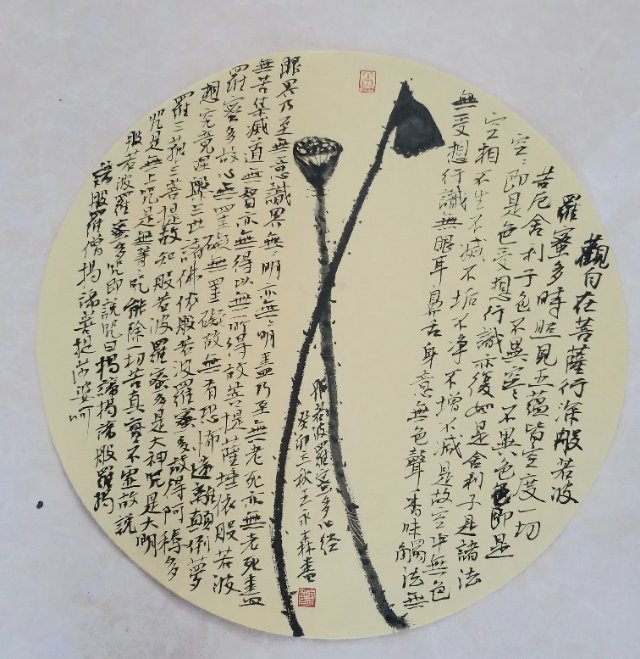 觀自在菩薩行深般若波
羅蜜多時照見五蘊皆空度一切
苦厄舍利子色不異空空不異色色即是
空空即是色受想行識亦復如是舍利子是諸法
空相不生不滅不垢不净不增不減是故空中無色
無受想行識無眼耳鼻舌身意無色聲香味觸法無
眼界乃至無意識界無無明亦無無明盡乃至無老死亦無老死盡
無苦集滅道無智亦無得以無所得故菩提薩埵依般若波
羅蜜多故心無罣礙無罣礙故無有恐怖遠離顛倒夢
想究竟涅槃三世諸佛依般若波羅蜜多故得阿耨多
羅三藐三菩提故知般若波羅蜜多是大神咒是大明
咒是無上咒是無等等咒能除一切苦真實不虛故說
般若波羅蜜多咒即說咒曰揭諦揭諦般羅揭
諦般羅僧揭諦菩提沙婆呵
般若波羅蜜多心經
癸卯三秋王永森畫